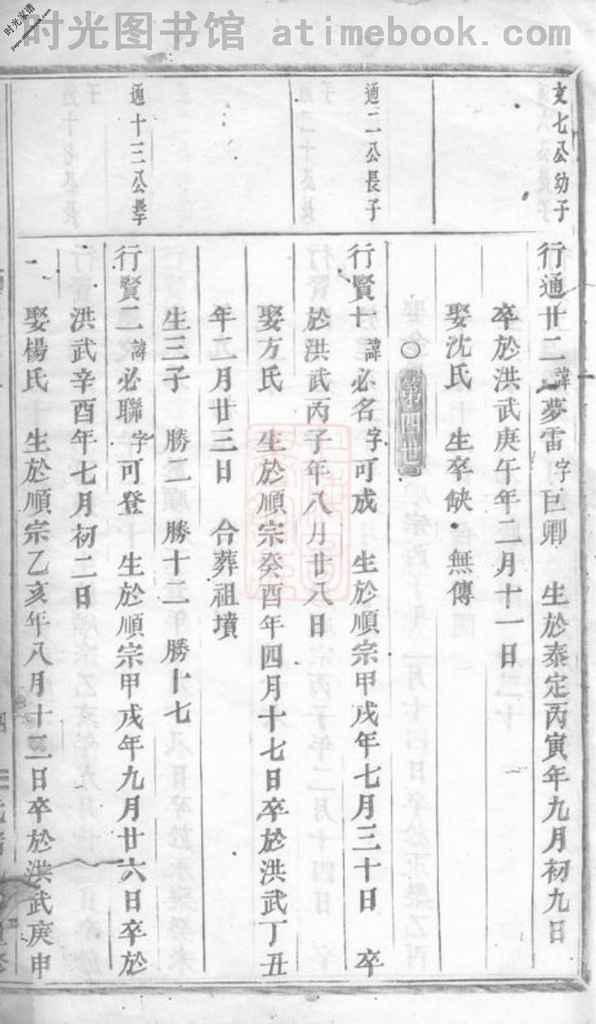 时光图书馆 atimebook.com
时光家谱
文七公幼子
行通廿二諱夢雷字巨卿 生於泰定丙寅年九月初九日
卒於洪武庚午年二月十一日
娶沈氏 生卒缺 無傳
第四世
通二公長子
行賢十諱必名字可成 生於順宗甲戌年七月三十日 卒
於洪武丙子年八月廿八日
娶方氏 生於順宗癸酉年四月十七日卒於洪武丁丑
年二月廿三日 合葬祖墳
生三子 勝二勝十二 勝十七
通十三公
行賢二諱必聯字可登 生於順宗甲戌年九月廿六日卒於
洪武辛酉年七月初二日
娶楊氏 生於順宗乙亥年八月十三日卒於洪武庚申